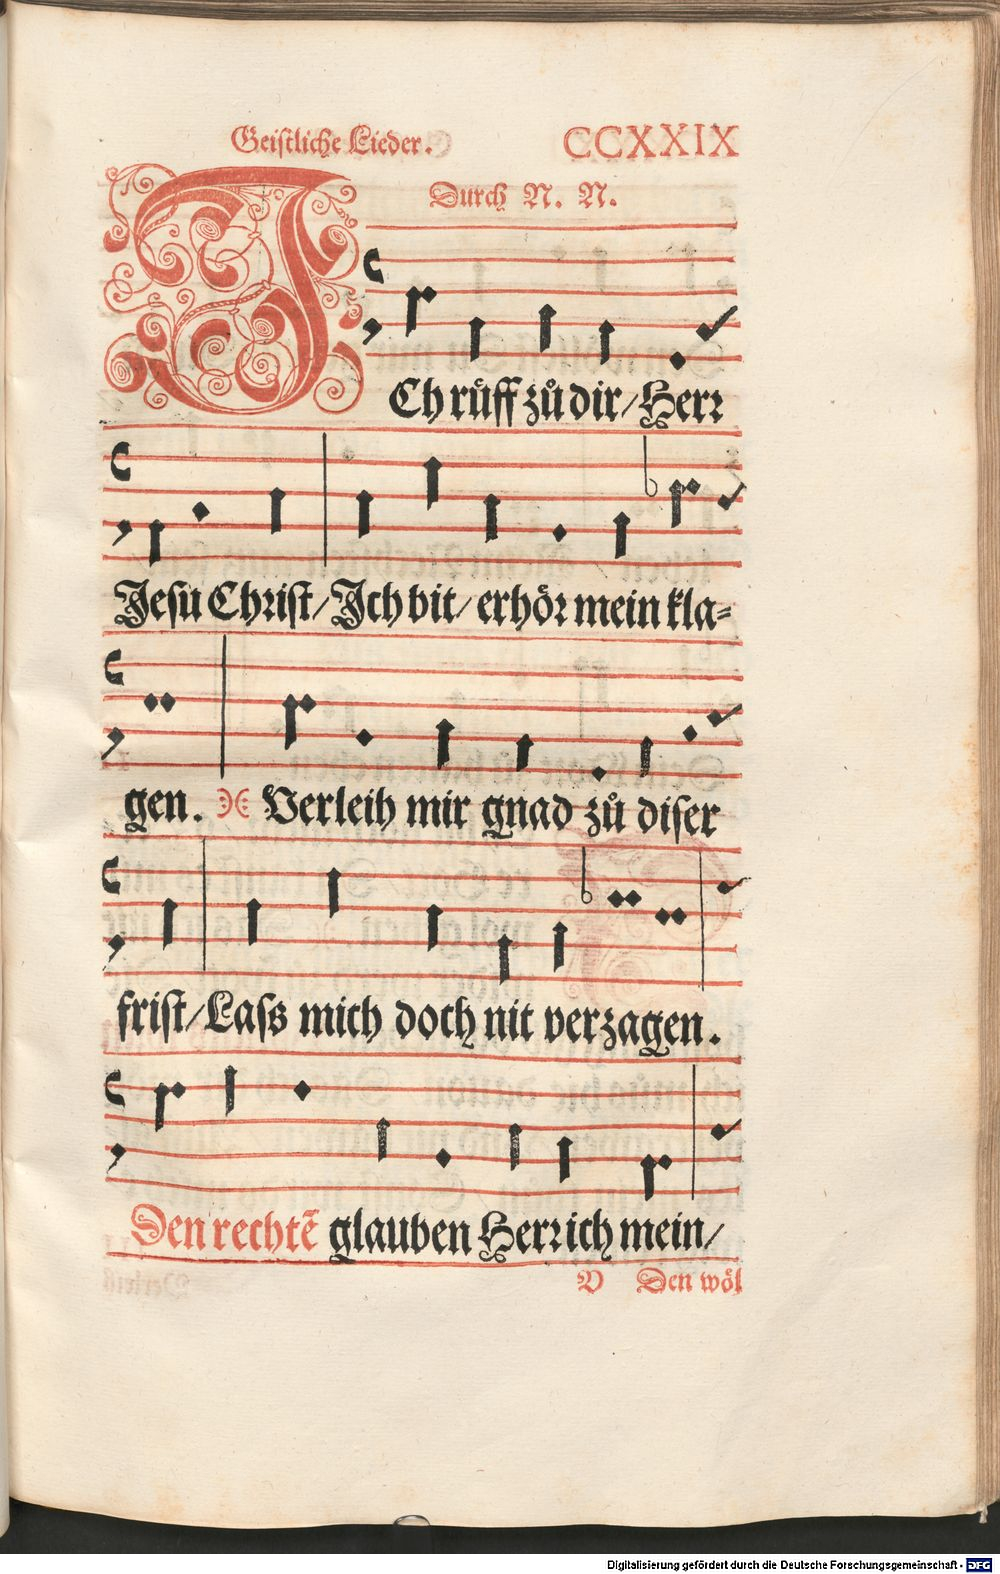 Geistliche Lieder. CCXXIX
Durch N. N.
ICh rüff zů dir/ Herr
Jesu Christ/ Ich bit/ erhör mein kla-
gen. Verleih mir gnad zů diser
frist/ Lass mich doch nit verzagen.
Den rechtē glauben Herr ich mein/
V Den wöl
Digitalisierung gefördert durch die Deutsche Forschungsgemeinschaft - DFG